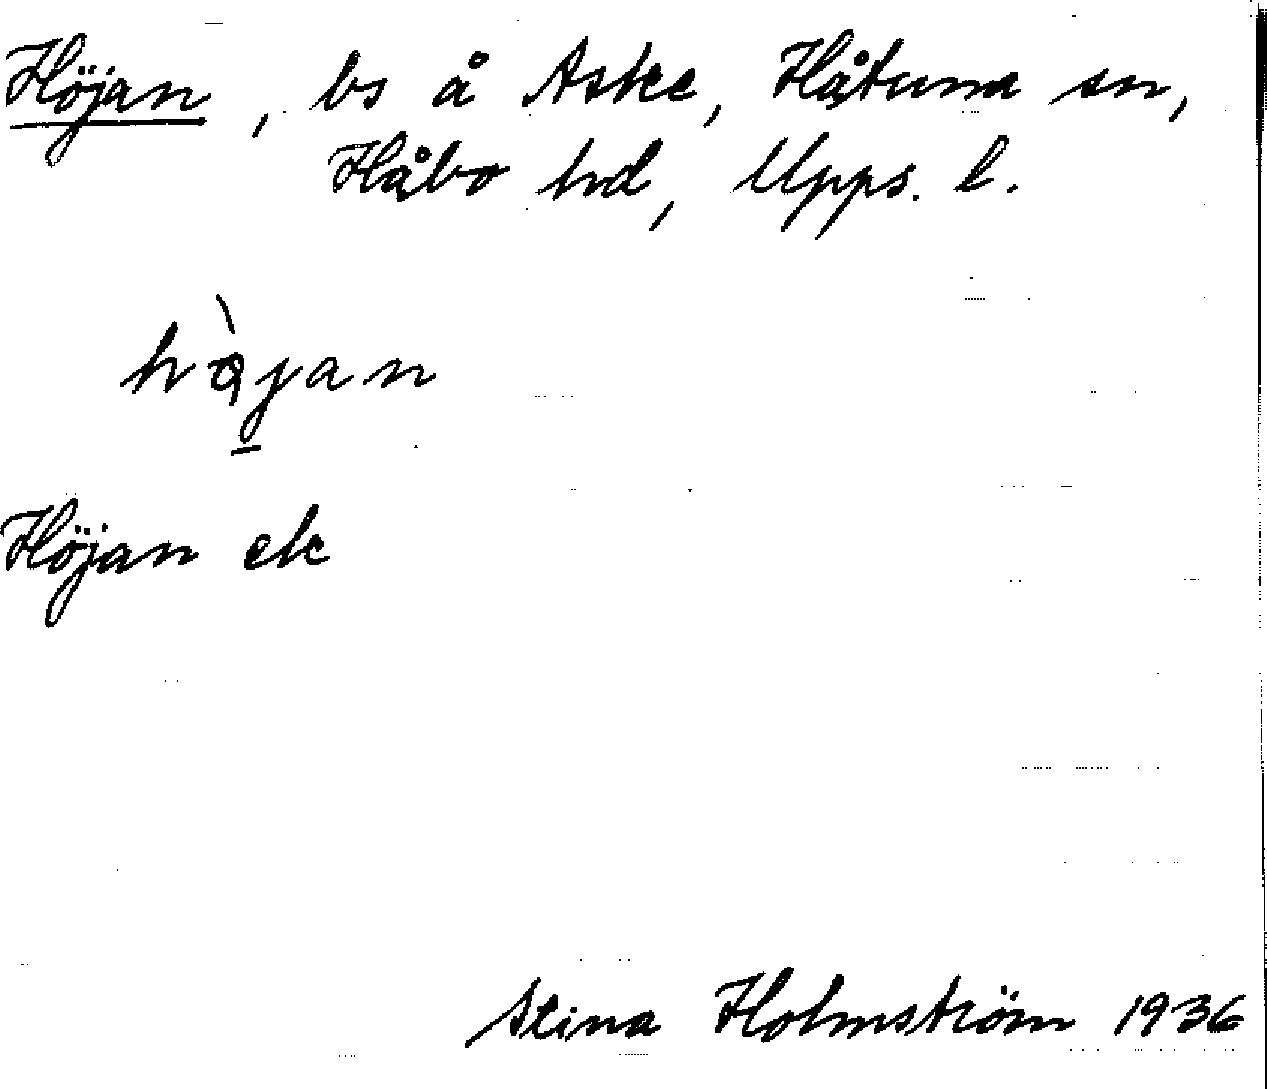 Höjan, bs å Aske, Håtuna sn,
Håbo hd, Upps. l.
Höjan ek
Stina Holmström 1936